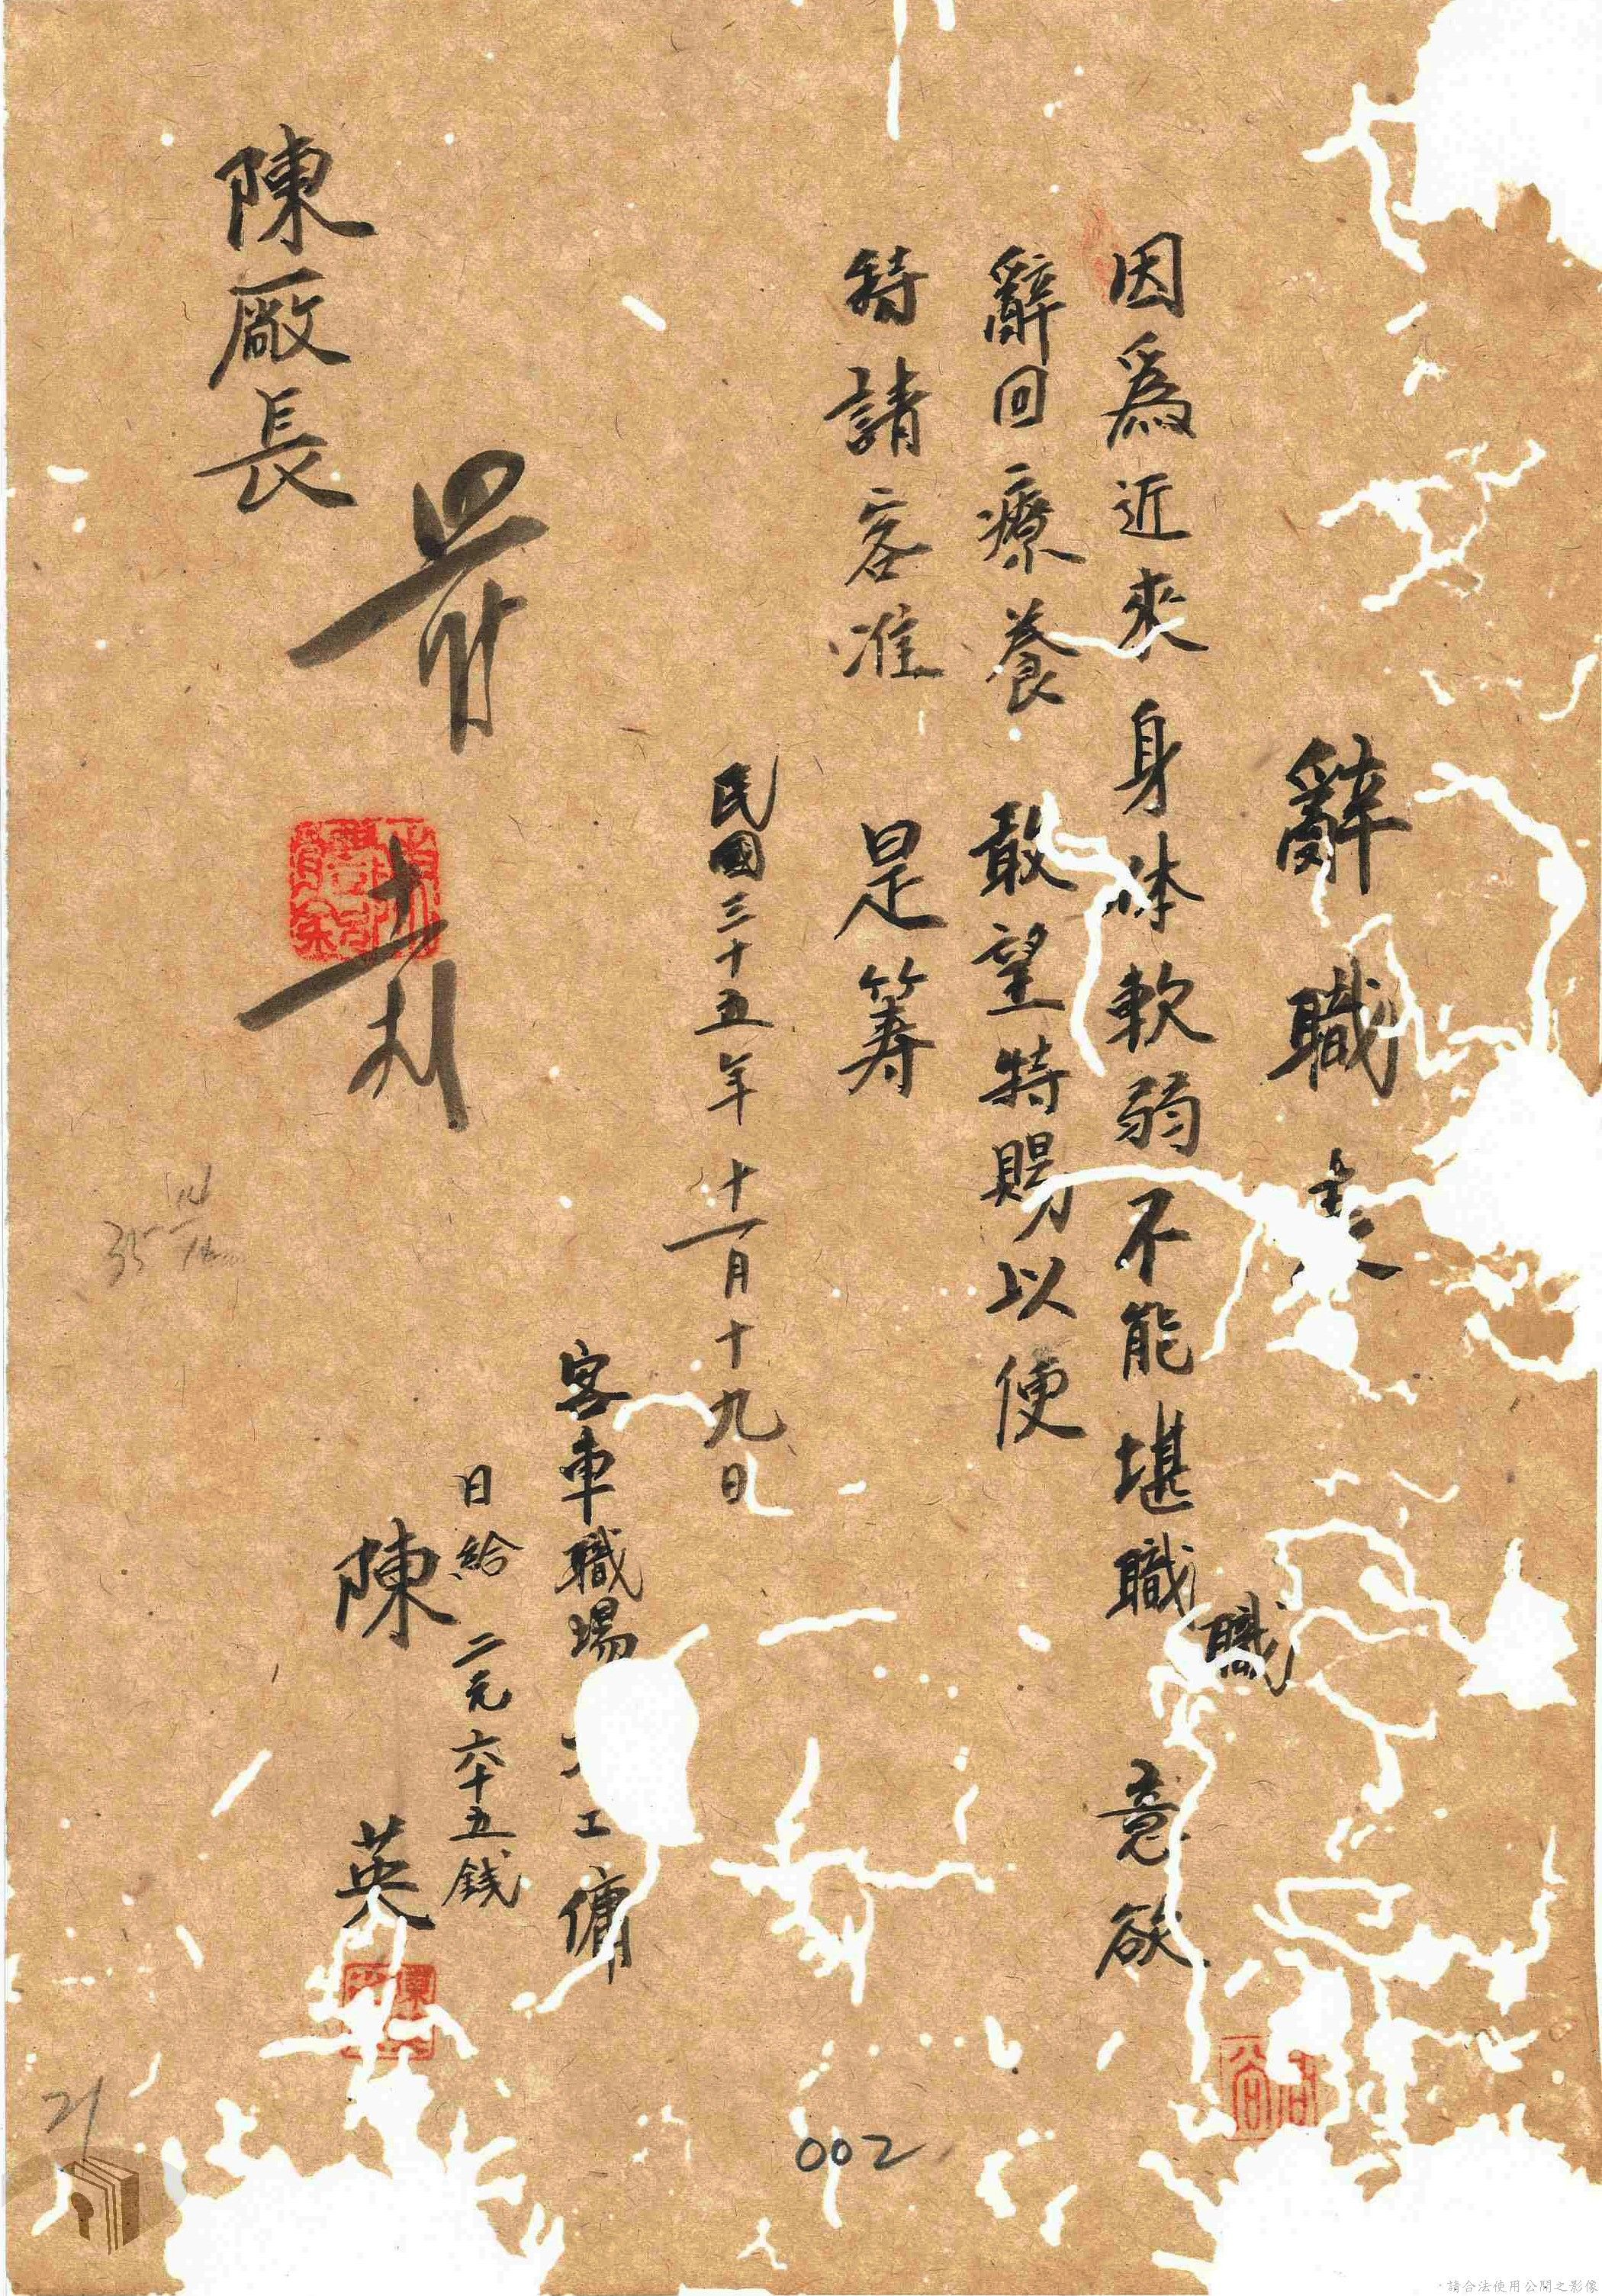 辭職表
職
因爲近來身体軟弱不能堪職 意欲
辭回療養 敢望特賜以便
特請容准 是筹
民國三十五年十一月十九日
客車職場 工傭
日給 二元六十五錢
陳 英
陳廠長
35
21
002
請合法使用公開之影像